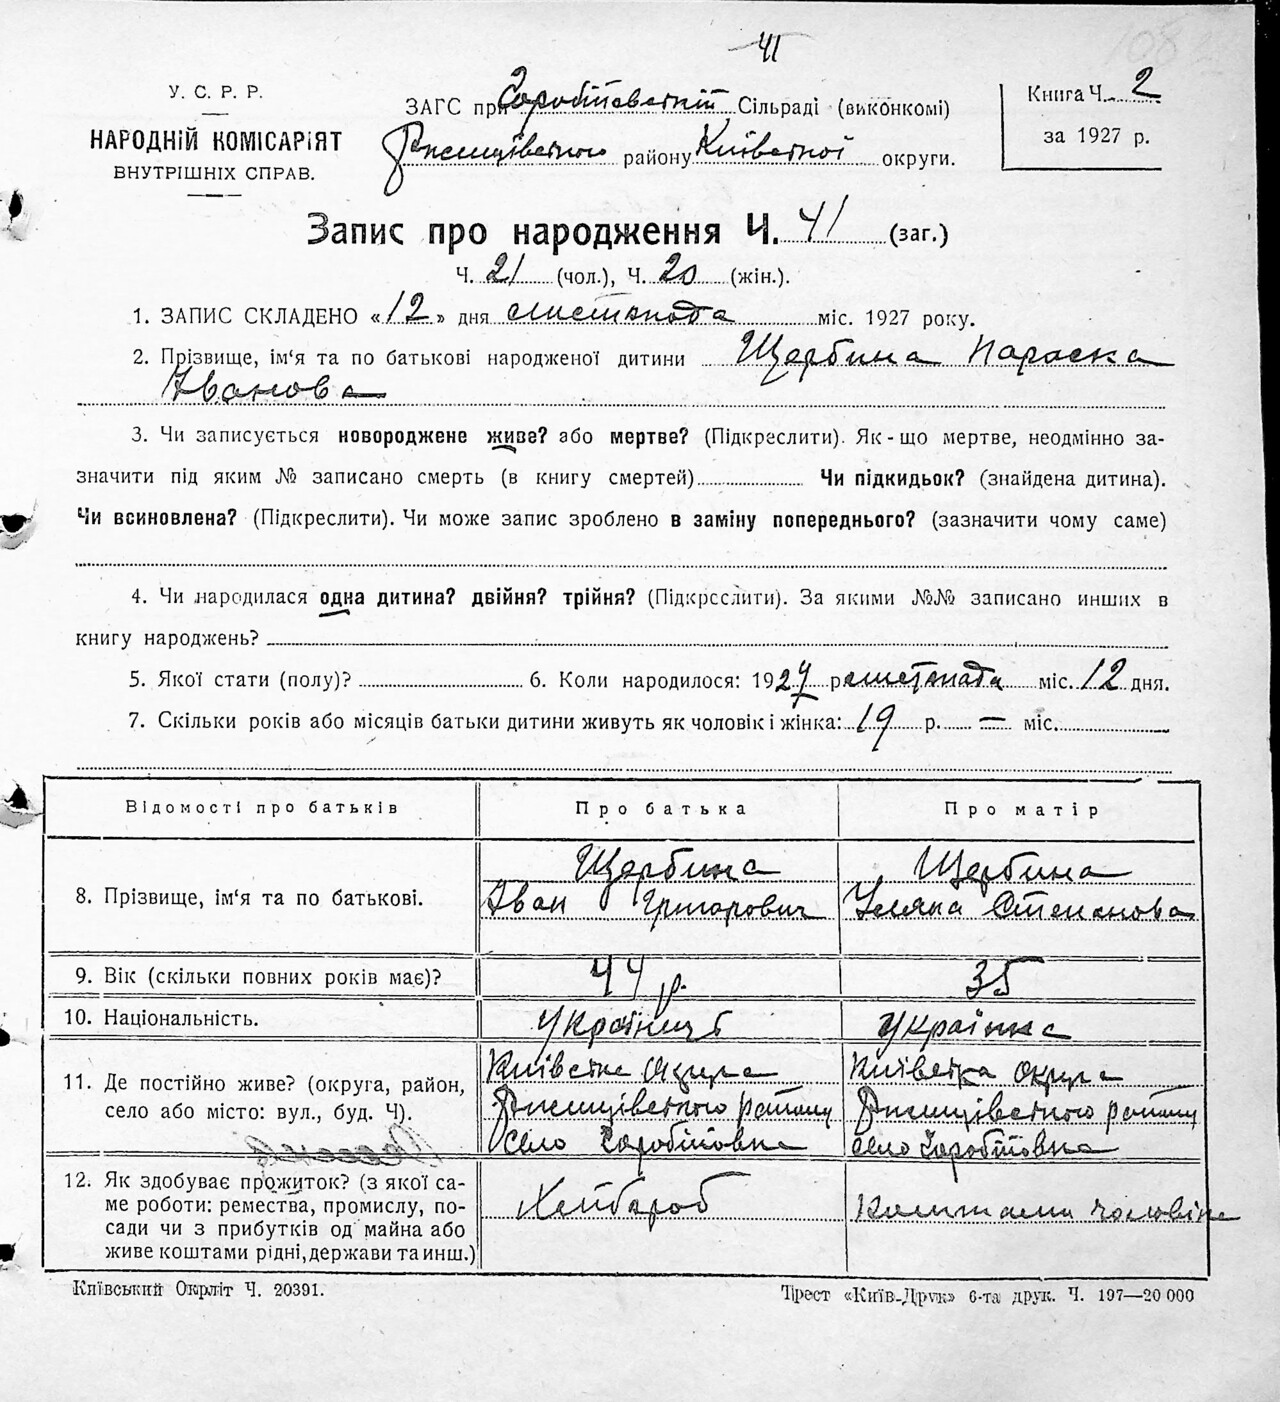 41
У. С. Р. Р.
НАРОДНІЙ КОМІСАРІЯТ
ВНУТРІШНІХ СПРАВ.
ЗАГС при Горобіївській Сільраді (виконкомі)
Ржищівського району Київської округи.
Книга Ч. 2
за 1927 р.
Запис про народження Ч. 41 (заг.)
Ч. 21 (чол.), Ч. 20 (жін.).
1. ЗАПИС СКЛАДЕНО «12» дня листопада міс. 1927 року.
2. Прізвище, ім'я та по батькові народженої дитини Щербина Параска
Іванова
3. Чи записується новороджене живе? або мертве? (Підкреслити). Як-що мертве, неодмінно за-
значити під яким № записано смерть (в книгу смертей) Чи підкидьок? (знайдена дитина).
Чи всиновлена? (Підкреслити). Чи може запис зроблено в заміну попереднього? (зазначити чому саме)
4. Чи народилася одна дитина? двійня? трійня? (Підкреслити). За якими №№ записано инших в
книгу народжень?
5. Якої стати (полу)? 6. Коли народилося: 1927 р листопада міс. 12 дня.
7. Скільки років або місяців батьки дитини живуть як чоловік і жінка: 19 р. — міс.
Відомості про батьків Про батька Про матір
8. Прізвище, ім'я та по батькові.
Щербина
Іван Григорович
Щербина
Уляна Степанова
9. Вік (скільки повних років має)? 44 р. 35
10. Національність. Українець Українка
11. Де постійно живе? (округа, район,
село або місто: вул., буд. Ч).
Київська Округа
Ржищівського району
село
Київська Округа
Ржищівського району
село
12. Як здобуває прожиток? (з якої са-
ме роботи: ремества, промислу, по-
сади чи з прибутків од майна або
живе коштами рідні, держави та инш.)
Хлібороб
Коштами чоловіка
Київський Окрліт Ч. 20391.
Трест «Київ-Друк» 6-та друк. Ч. 197—20 000